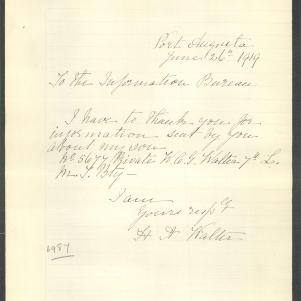 Port Augusta
June 26th 1919
To the Information Bureau
I have to thank you for
information sent by you
about my son
No 5677 Private W.C.G. Walter 7th L.
M. T. Bty —
I am
Yours respy
H A Walter
6987